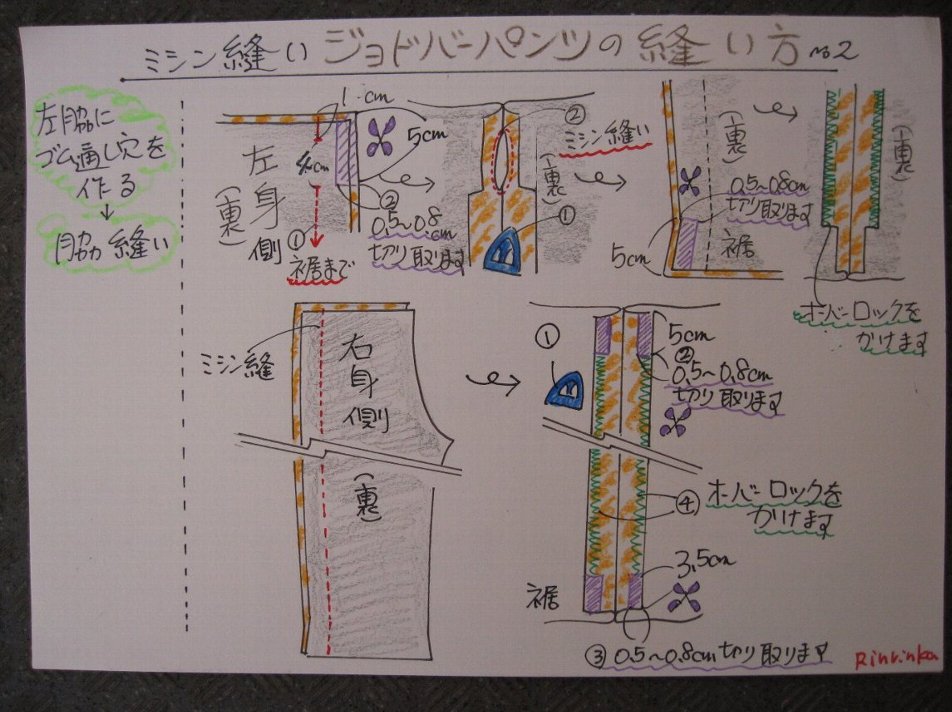 ミシン縫い ジョドバーパンツの縫い方 No2
左脇に
ゴム通し穴を
作る
↓
脇縫い
1cm
4cm
5cm
左身側
(裏)
①
裾まで
②
0.5~0.8cm
切り取ります
②
ミシン縫い
(裏)
①
(裏)
0.5~0.8cm
切り取ります
5cm
裾
(裏)
オーバーロックを
かけます
ミシン縫
右身側
(裏)
①
5cm
②
0.5~0.8cm
切り取ります
④ オーバーロックを
かけます
3.5cm
裾
③ 0.5~0.8cm切り取ります
Rinrinka